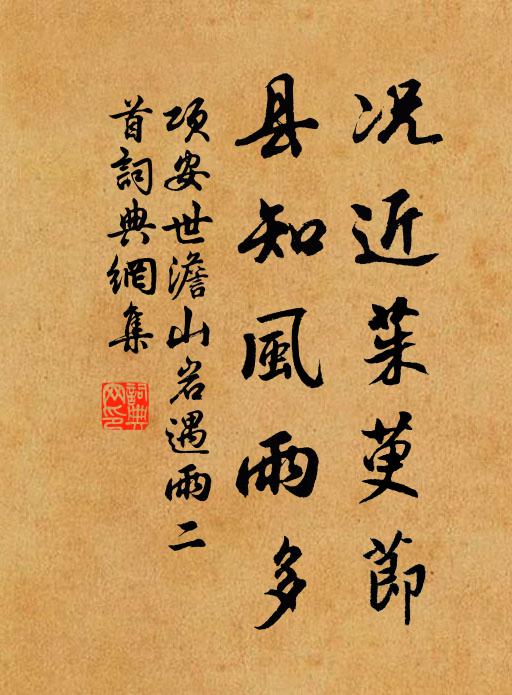 况近茱萸節
县知風雨多
項安世澹山岩遇雨二
首詞典網集
詞典
网印